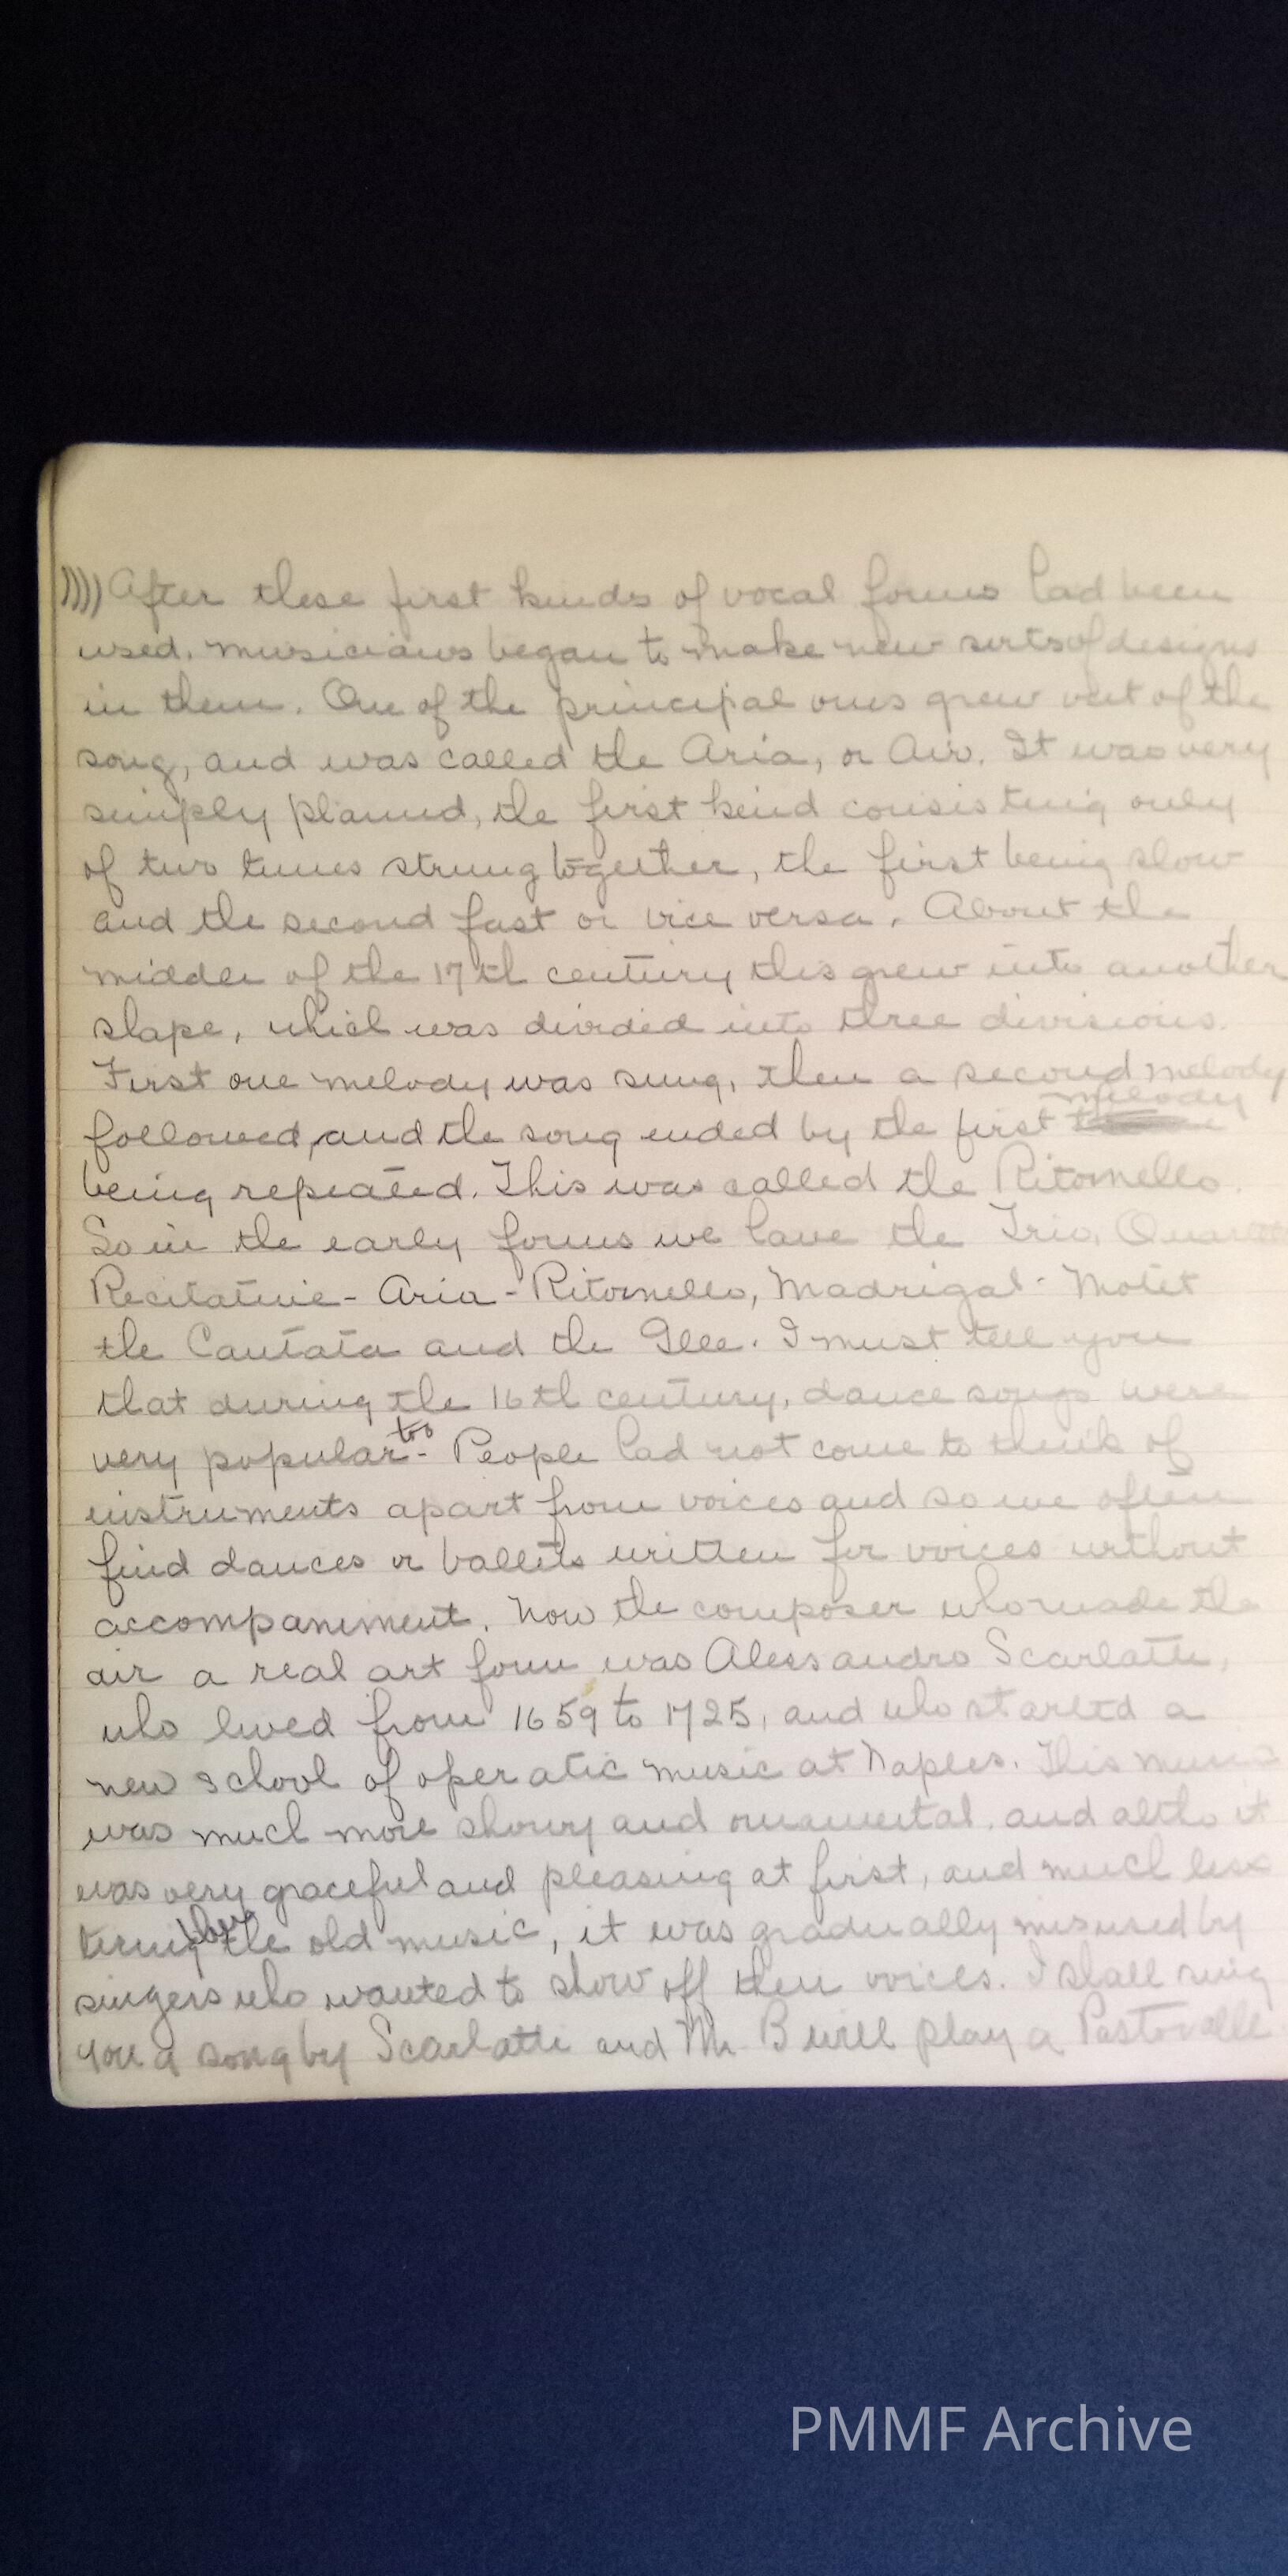 )))) After these first kinds of vocal forms had been
used, musicians began to make new sorts of designs
in them. One of the principal ones grew out of the
song, and was called the Aria, or Air. It was very
simply planned, the first kind consisting only
of two tunes strung together, the first being slow
and the second fast or vice versa. About the
middle of the 17th century this grew into another
shape, which was divided into three divisions.
First one melody was sung, then a second melody
melody
followed, and the song ended by the first
being repeated. This was called the Ritornello.
So in the early forms we have the Trio,
Recitative - Aria - Ritornello, Madrigal - Motet
the Cantata and the Glee. I must tell you
that during the 16th century, dance songs were
very popular too - People had not come to think of
instruments apart from voices and so we often
find dances or ballets written for voices without
accompaniment. Now the composer who made the
air a real art form was Alessandro Scarlatti,
who lived from 1659 to 1725, and who started a
new school of operatic music at Naples. This
was much more showy and ornamental, and altho it
was very graceful and pleasing at first, and much less
than the old music, it was gradually misused by
singers who wanted to show off their voices. I shall sing
you a song by Scarlatti and Mr. B will play a
PMMF Archive